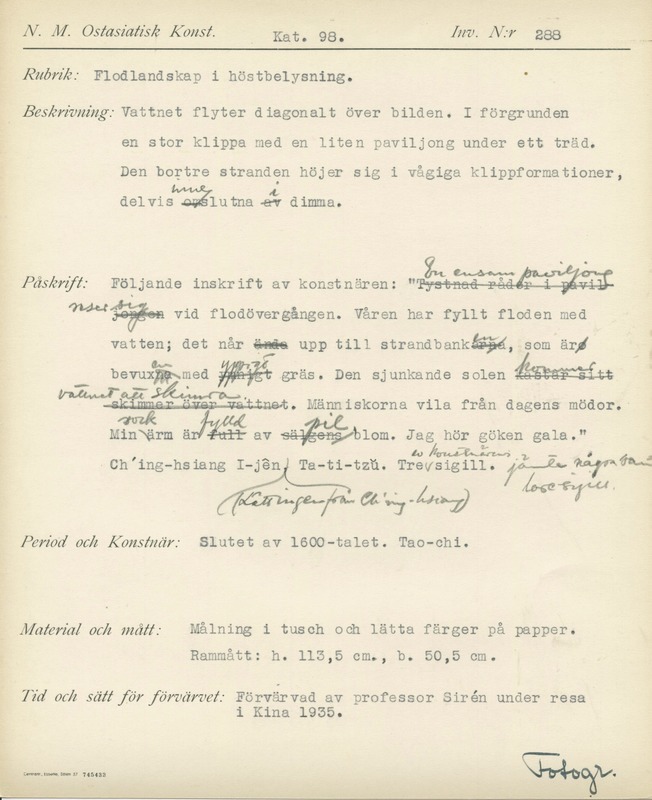 N. M. Ostasiatisk Konst. Kat. 98. Inv. N:r 288
Rubrik: Flodlandskap i höstbelysning.
Beskrivning: Vattnet flyter diagonalt över bilden. I förgrunden
en stor klippa med en liten paviljong under ett träd.
Den bortre stranden höjer sig i vågiga klippformationer,
inne i
delvis omslutna av dimma.
En ensam paviljong
Påskrift: Följande inskrift av konstnären: "Tystnad råder i pavil-
reser sig
jongen vid flodövergången. Våren har fyllt floden med
vatten; det når ända upp till strandbankarna, som är
yppigt kommer
bevuxna med gräs. Den sjunkande solen kastar sitt
vattnet att skimra
skimmer över vattnet. Människorna vila från dagens mödor.
rock fylld pil
Min ärm är full av sälgens blom. Jag hör göken gala."
av konstnärens jämte några
Ch'ing-hsiang I-jên, Ta-ti-tzŭ. Tre sigill.
(Lättingen från Ch'ing-hsiang)
Period och Konstnär: Slutet av 1600-talet. Tao-chi.
Material och mått: Målning i tusch och lätta färger på papper.
Rammått: h. 113,5 cm., b. 50,5 cm.
Tid och sätt för förvärvet: Förvärvad av professor Sirén under resa
i Kina 1935.
Fotogr.
745432